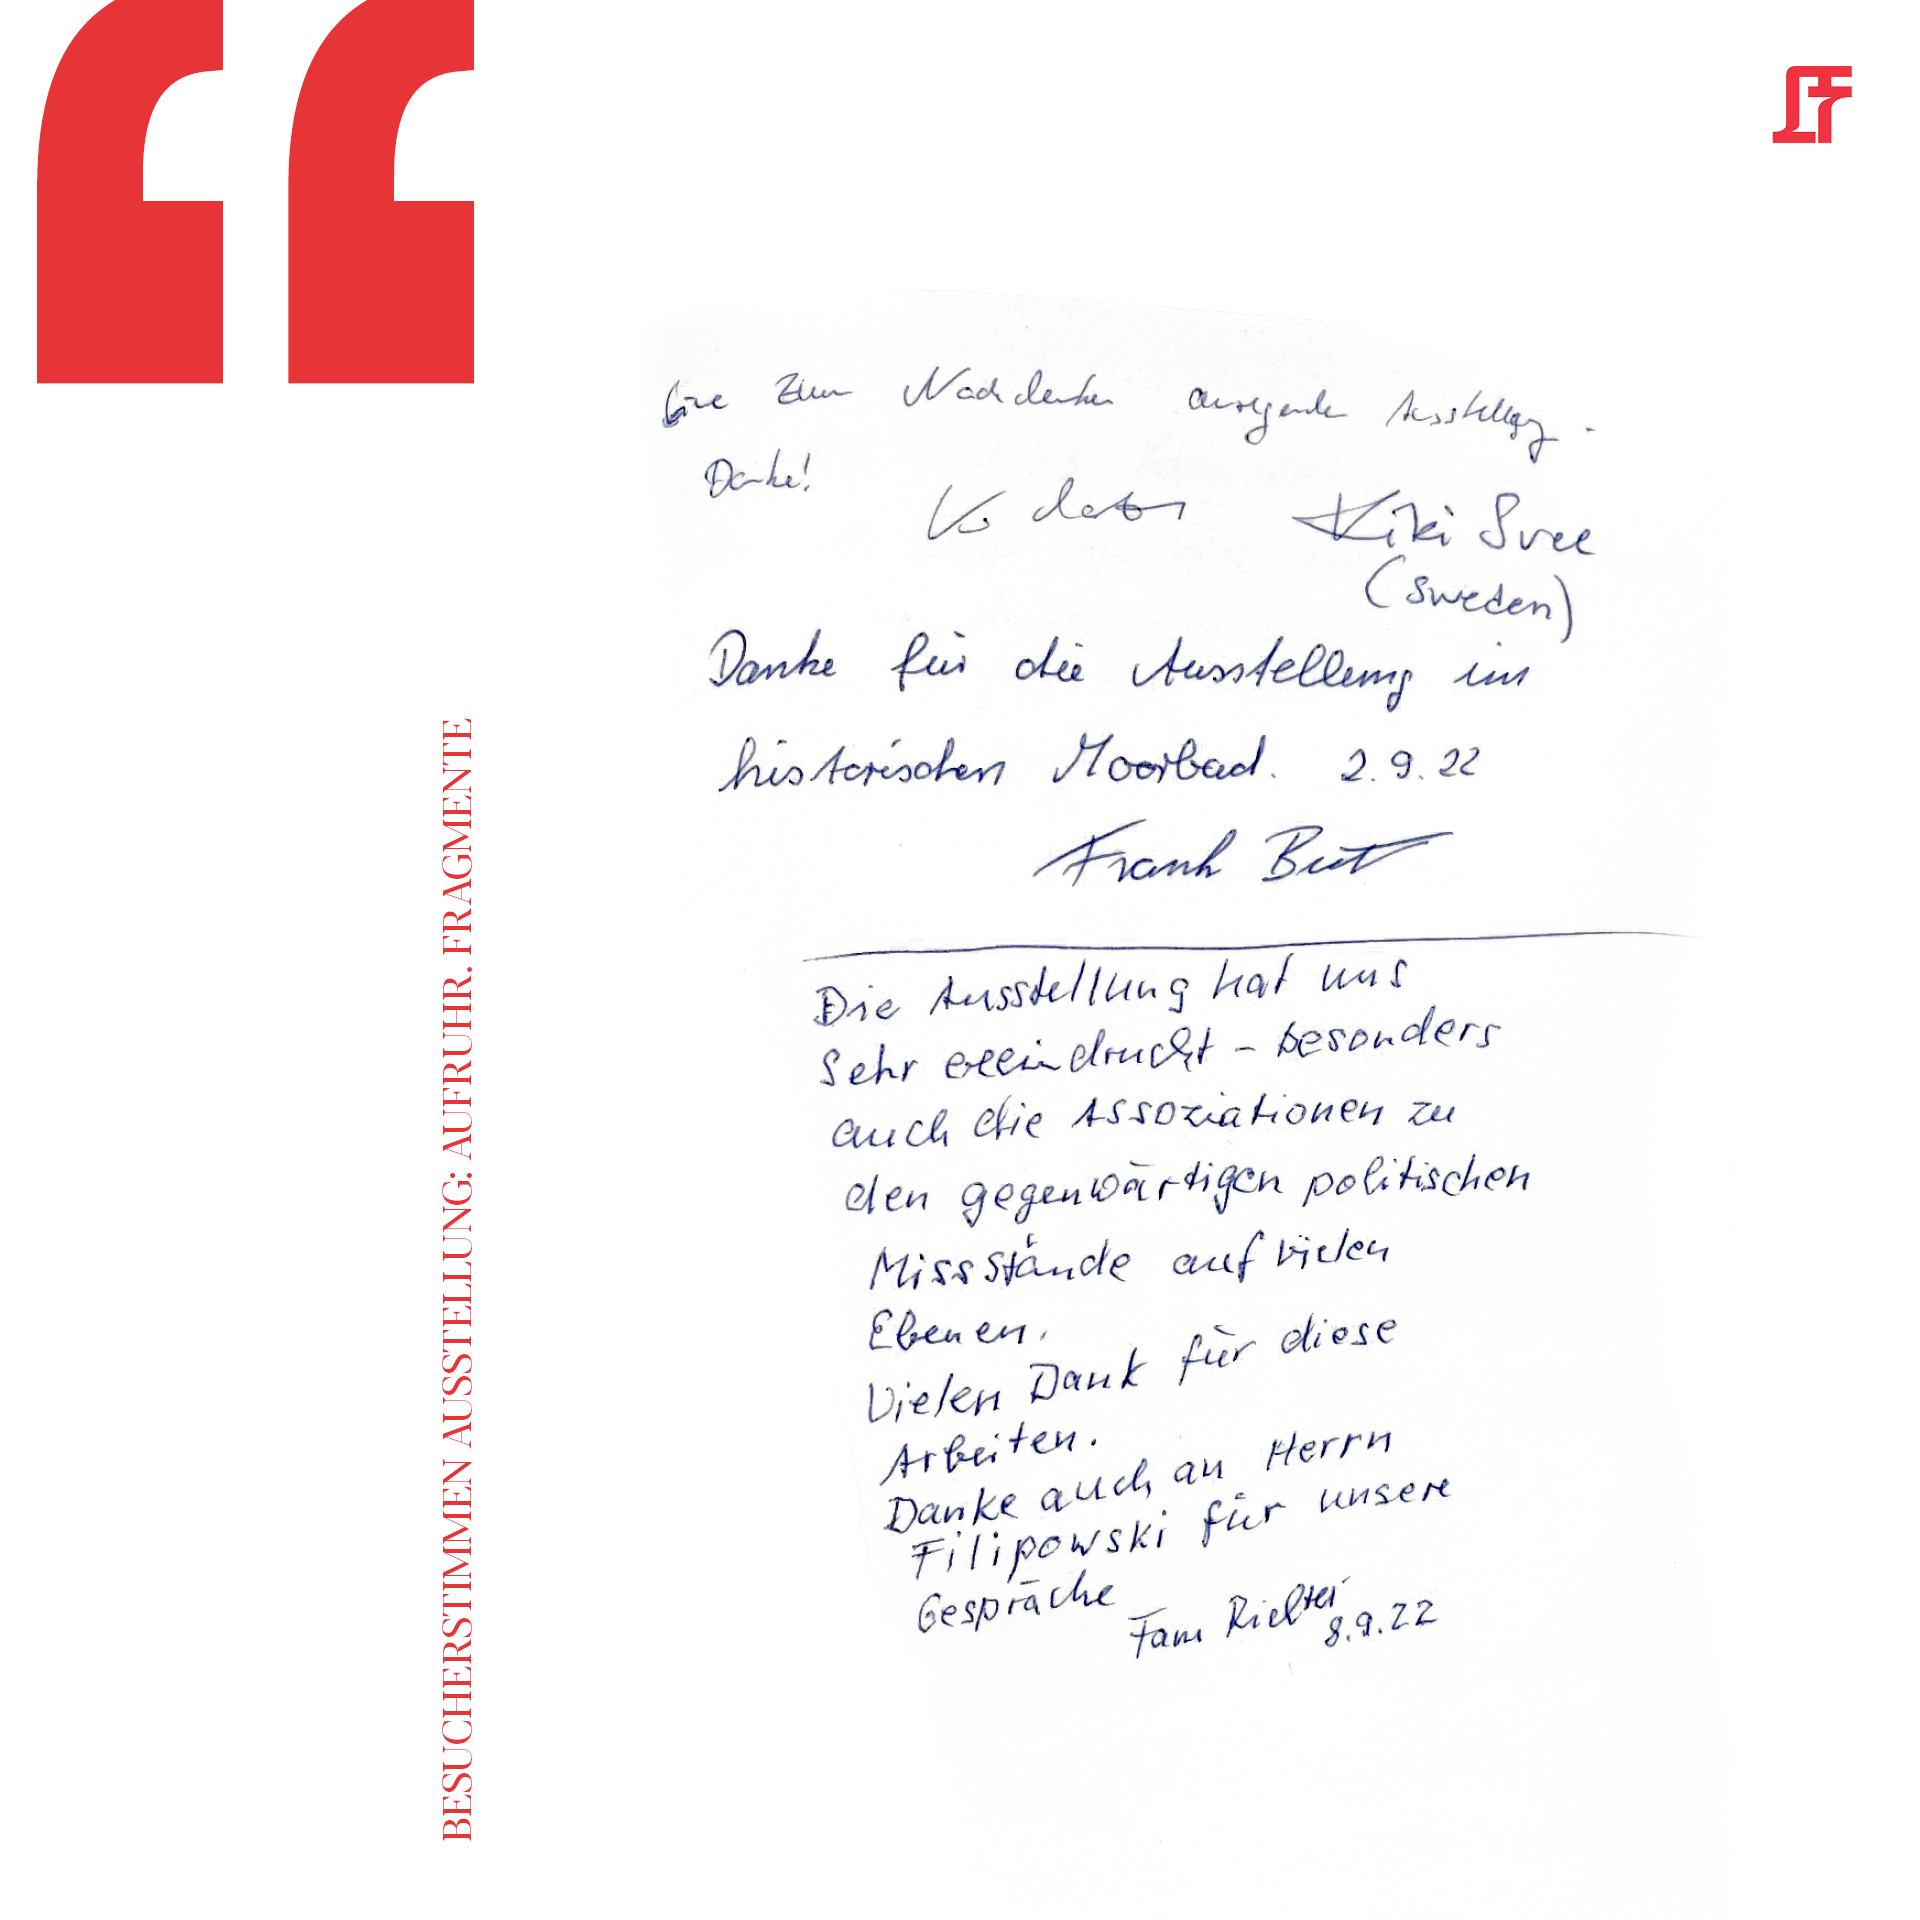 BESUCHERSTIMMEN AUSSTELLUNG: AUFRUHR. FRAGMENTE
Eine zum Nachdenken anregende Ausstellung.
Danke!
Kiki Svee
(Sweden)
Danke für die Ausstellung im
historischen Moorbad. 2.9.22
Frank
Die Ausstellung hat uns
Sehr beeindruckt – besonders
auch die Assoziationen zu
den gegenwärtigen politischen
Missstände auf vielen
Ebenen.
Vielen Dank für diese
Arbeiten.
Danke auch an Herrn
Filipowski für unsere
Gespräche
Fam Richter
8.9.22